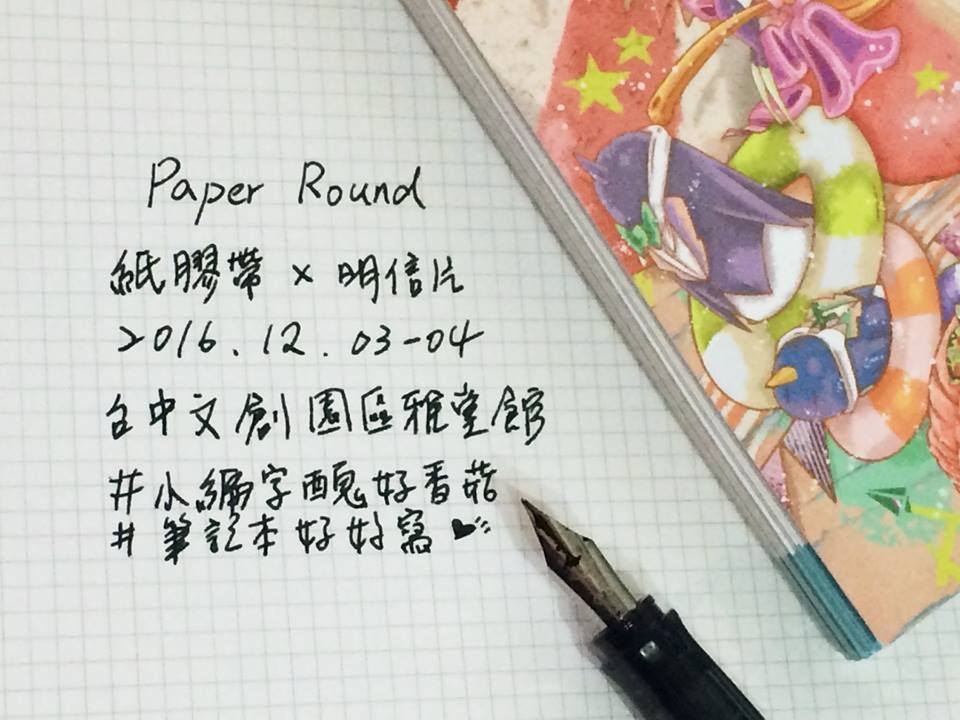 Paper Round
紙膠帶 × 明信片
2016.12.03-04
台中文創園區雅堂館
#小編字醜好香菇
#筆記本好好寫♥